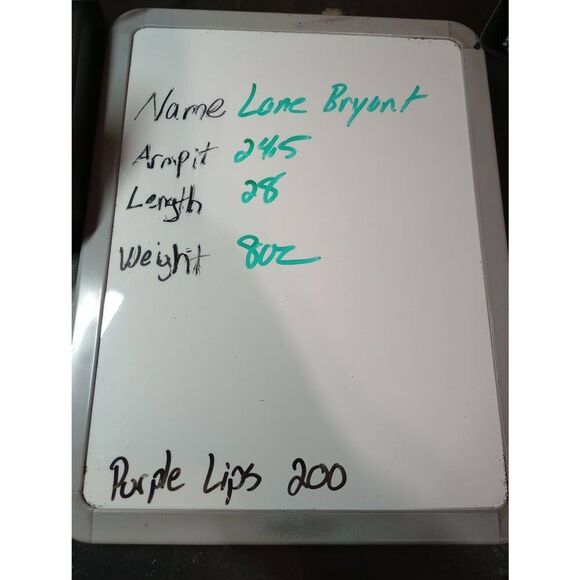 Name Lane Bryant
Armpit 24.5
Length 28
Weight 8oz
Purple Lips 200